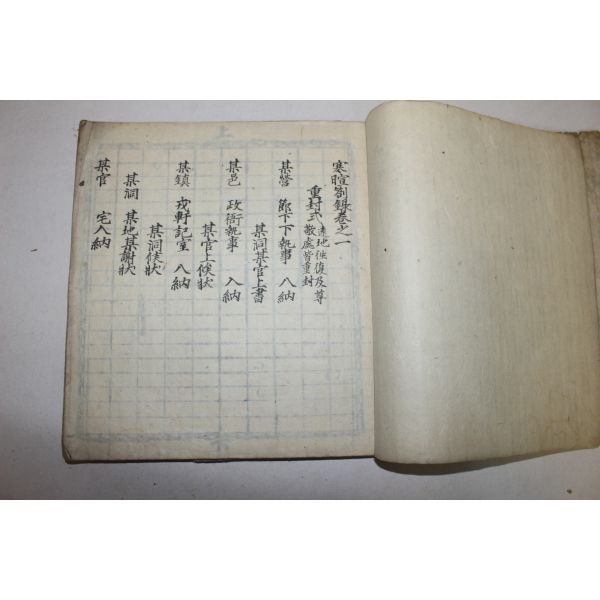 寒暄箚錄卷之一
重封式 遠地往復及尊敬處皆重封
某營 節下下執事 入納
某洞某官上書
某邑 政衙執事 入納
某官上候狀
某鎮 戎軒記室 入納
某洞候狀
某洞 某地某謝狀
某官 宅入納
上